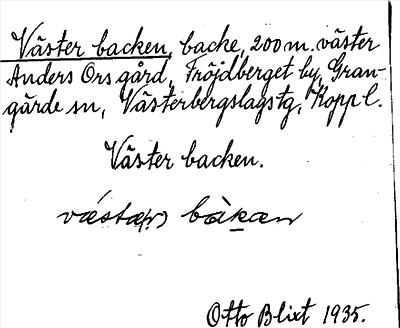 Väster backen, backe, 200 m. väster
Anders Ors gård, Fröjdberget by, Gran-
gärde sn, Västerbergslags tg, Kopp l.
Väster backen.
västa(r) bàkan
Otto Blixt 1935.